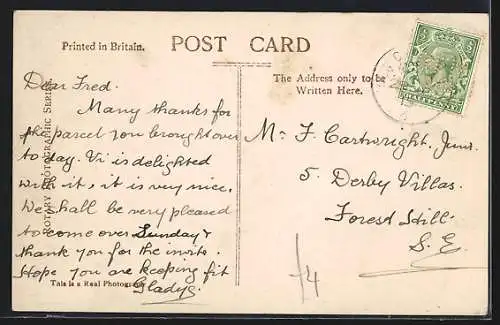 Printed in Britain.
POST CARD
The Address only to be
Written Here.
ROTARY PHOTOGRAPHIC SERIES
Dear Fred.
Many thanks for
the parcel you brought over
to day. Vi is delighted
with it, it is very nice.
We shall be very pleased
to come over Sunday &
thank you for the invite.
Hope you are keeping fit
Gladys.
This is a Real Photograph
Mr F. Cartwright, Junr.
5. Derby Villas.
Forest Hill.
S. E.
/4